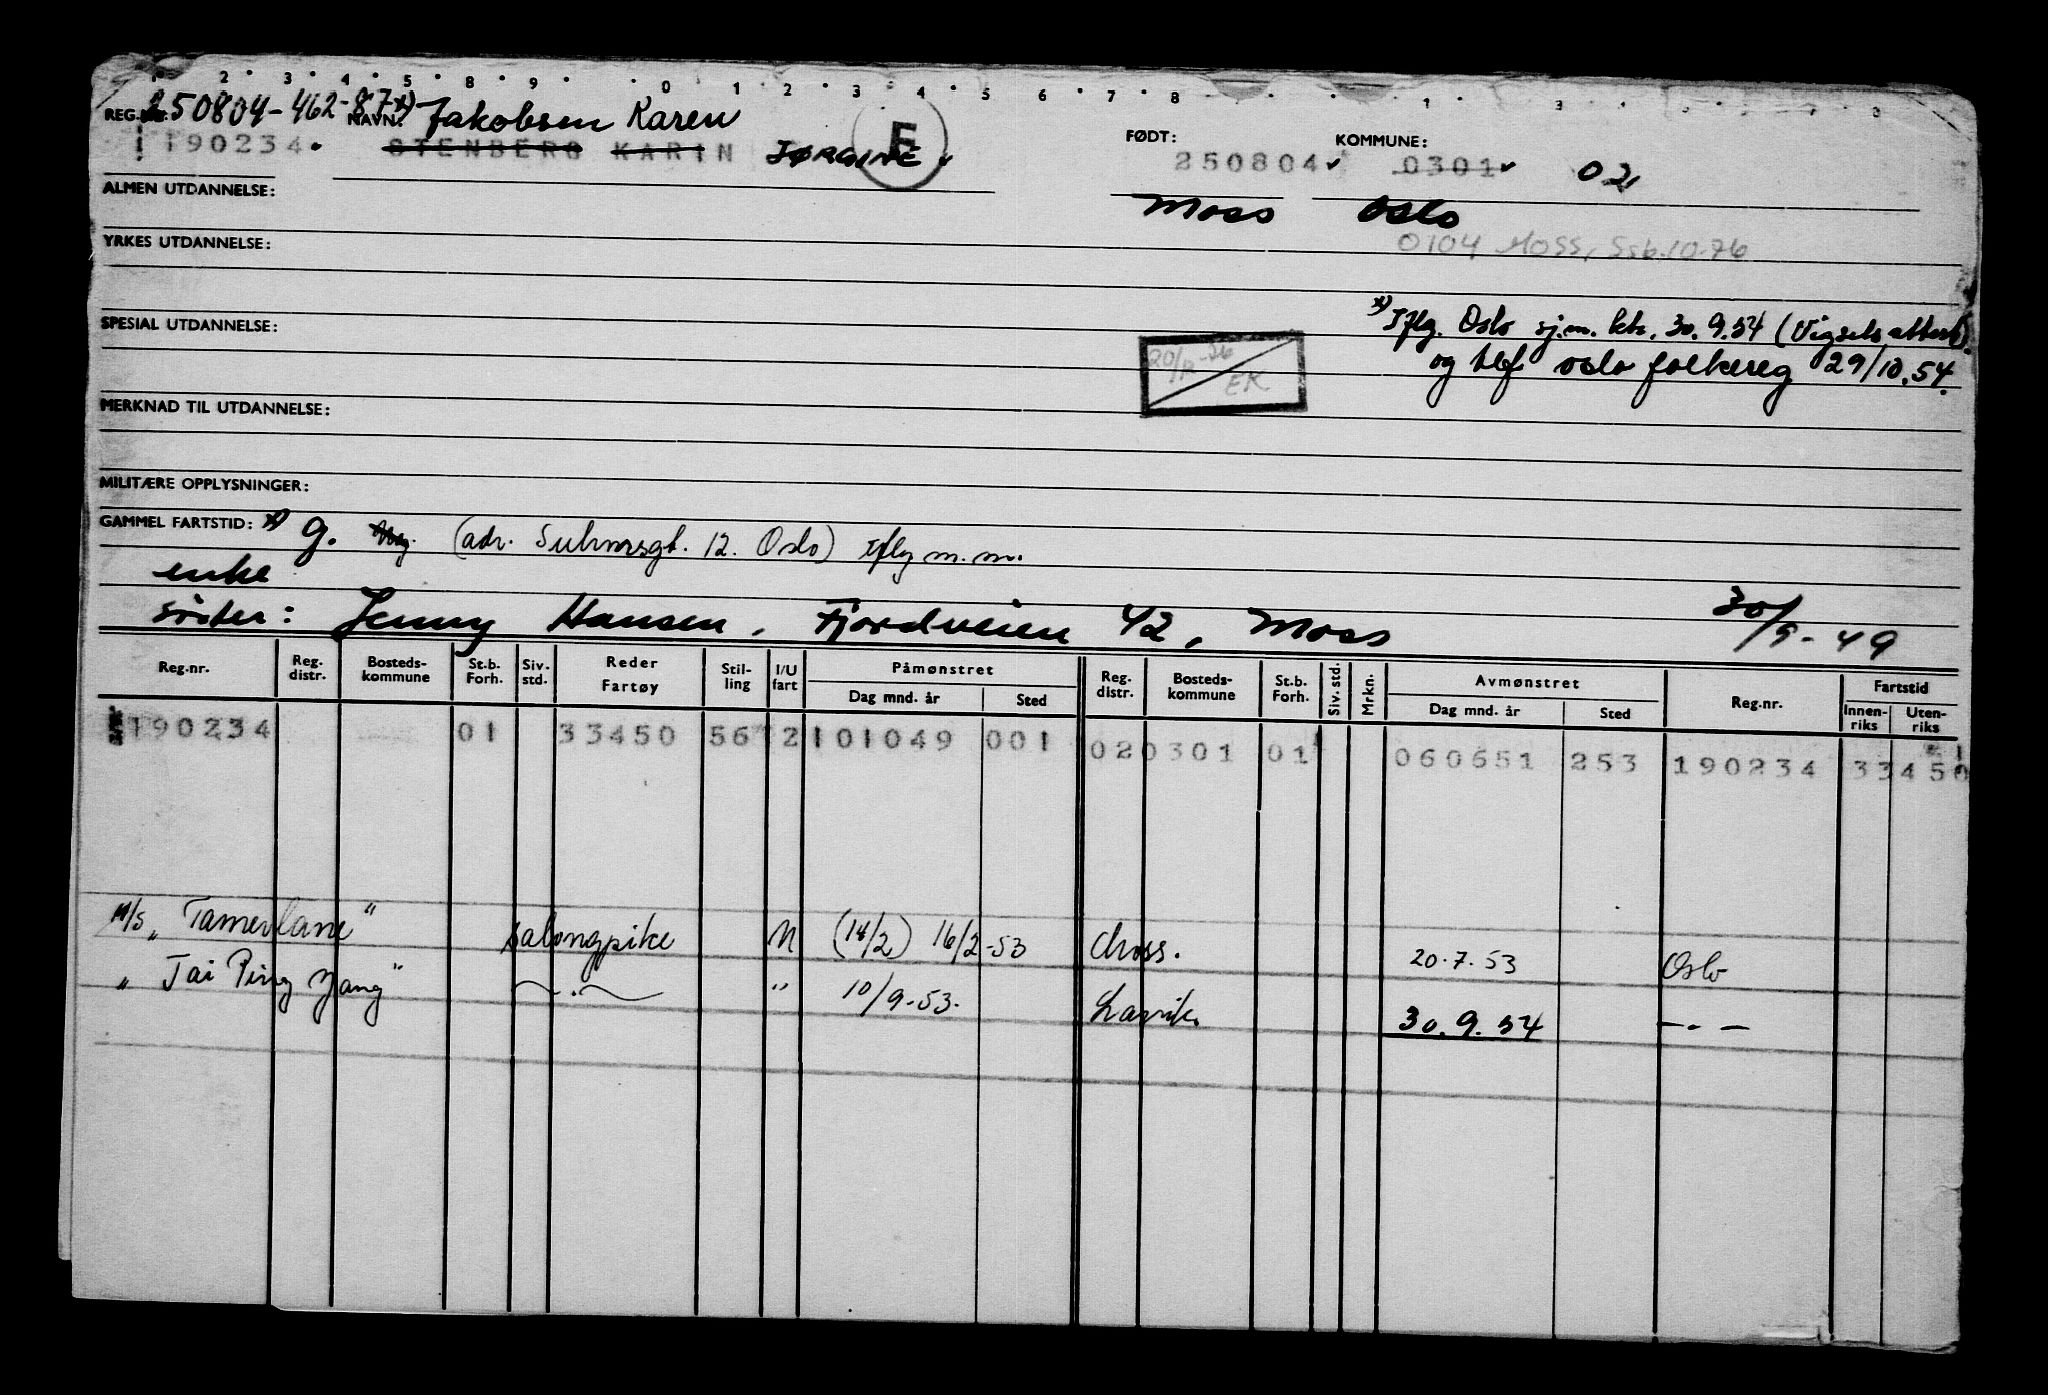 1 2 3 4 5 8 9 0 1 2 3 4 5 6 7 8 1 3
REG.NR.: 250804-462-87 x) NAVN: Jakobsen Karen
190234 STENBERG KARIN JØRGINE E
FØDT: 250804 KOMMUNE: 0301 02
ALMEN UTDANNELSE:
Moss Oslo
YRKES UTDANNELSE: 0104 MOSS, Ssb.10.76
SPESIAL UTDANNELSE:
x) Iflg. Oslo sj.m. ktr. 30.9.54 (Vigselsattest)
og tlf. oslo folkereg 29/10.54.
EK
MERKNAD TIL UTDANNELSE:
MILITÆRE OPPLYSNINGER:
GAMMEL FARTSTID: x) g. (adr. Suhmsgt. 12. Oslo) iflg m.m.
enke
søster: Jenny Hansen, Fjordveien 42, Moss 30/9-49
Reg.nr. Reg. distr. Bosteds-kommune St.b. Forh. Siv. std. Reder Fartøy Stil-ling I/U fart Påmønstret Dag mnd. år Sted Reg. distr. Bosteds-kommune St.b. Forh. Siv. std. Mrkn. Avmønstret Dag mnd. år Sted Reg.nr. Fartstid Innen-riks Uten-riks
190234 01 33450 56 2 101049 001 020301 01 060651 253 190234 33450
M/S "Tamerlane" salongpike N (14/2) 16/2-53 Moss. 20.7.53 Oslo
" Tai Ping Yang" —.— " 10/9-53. Larvik. 30.9.54 —.—